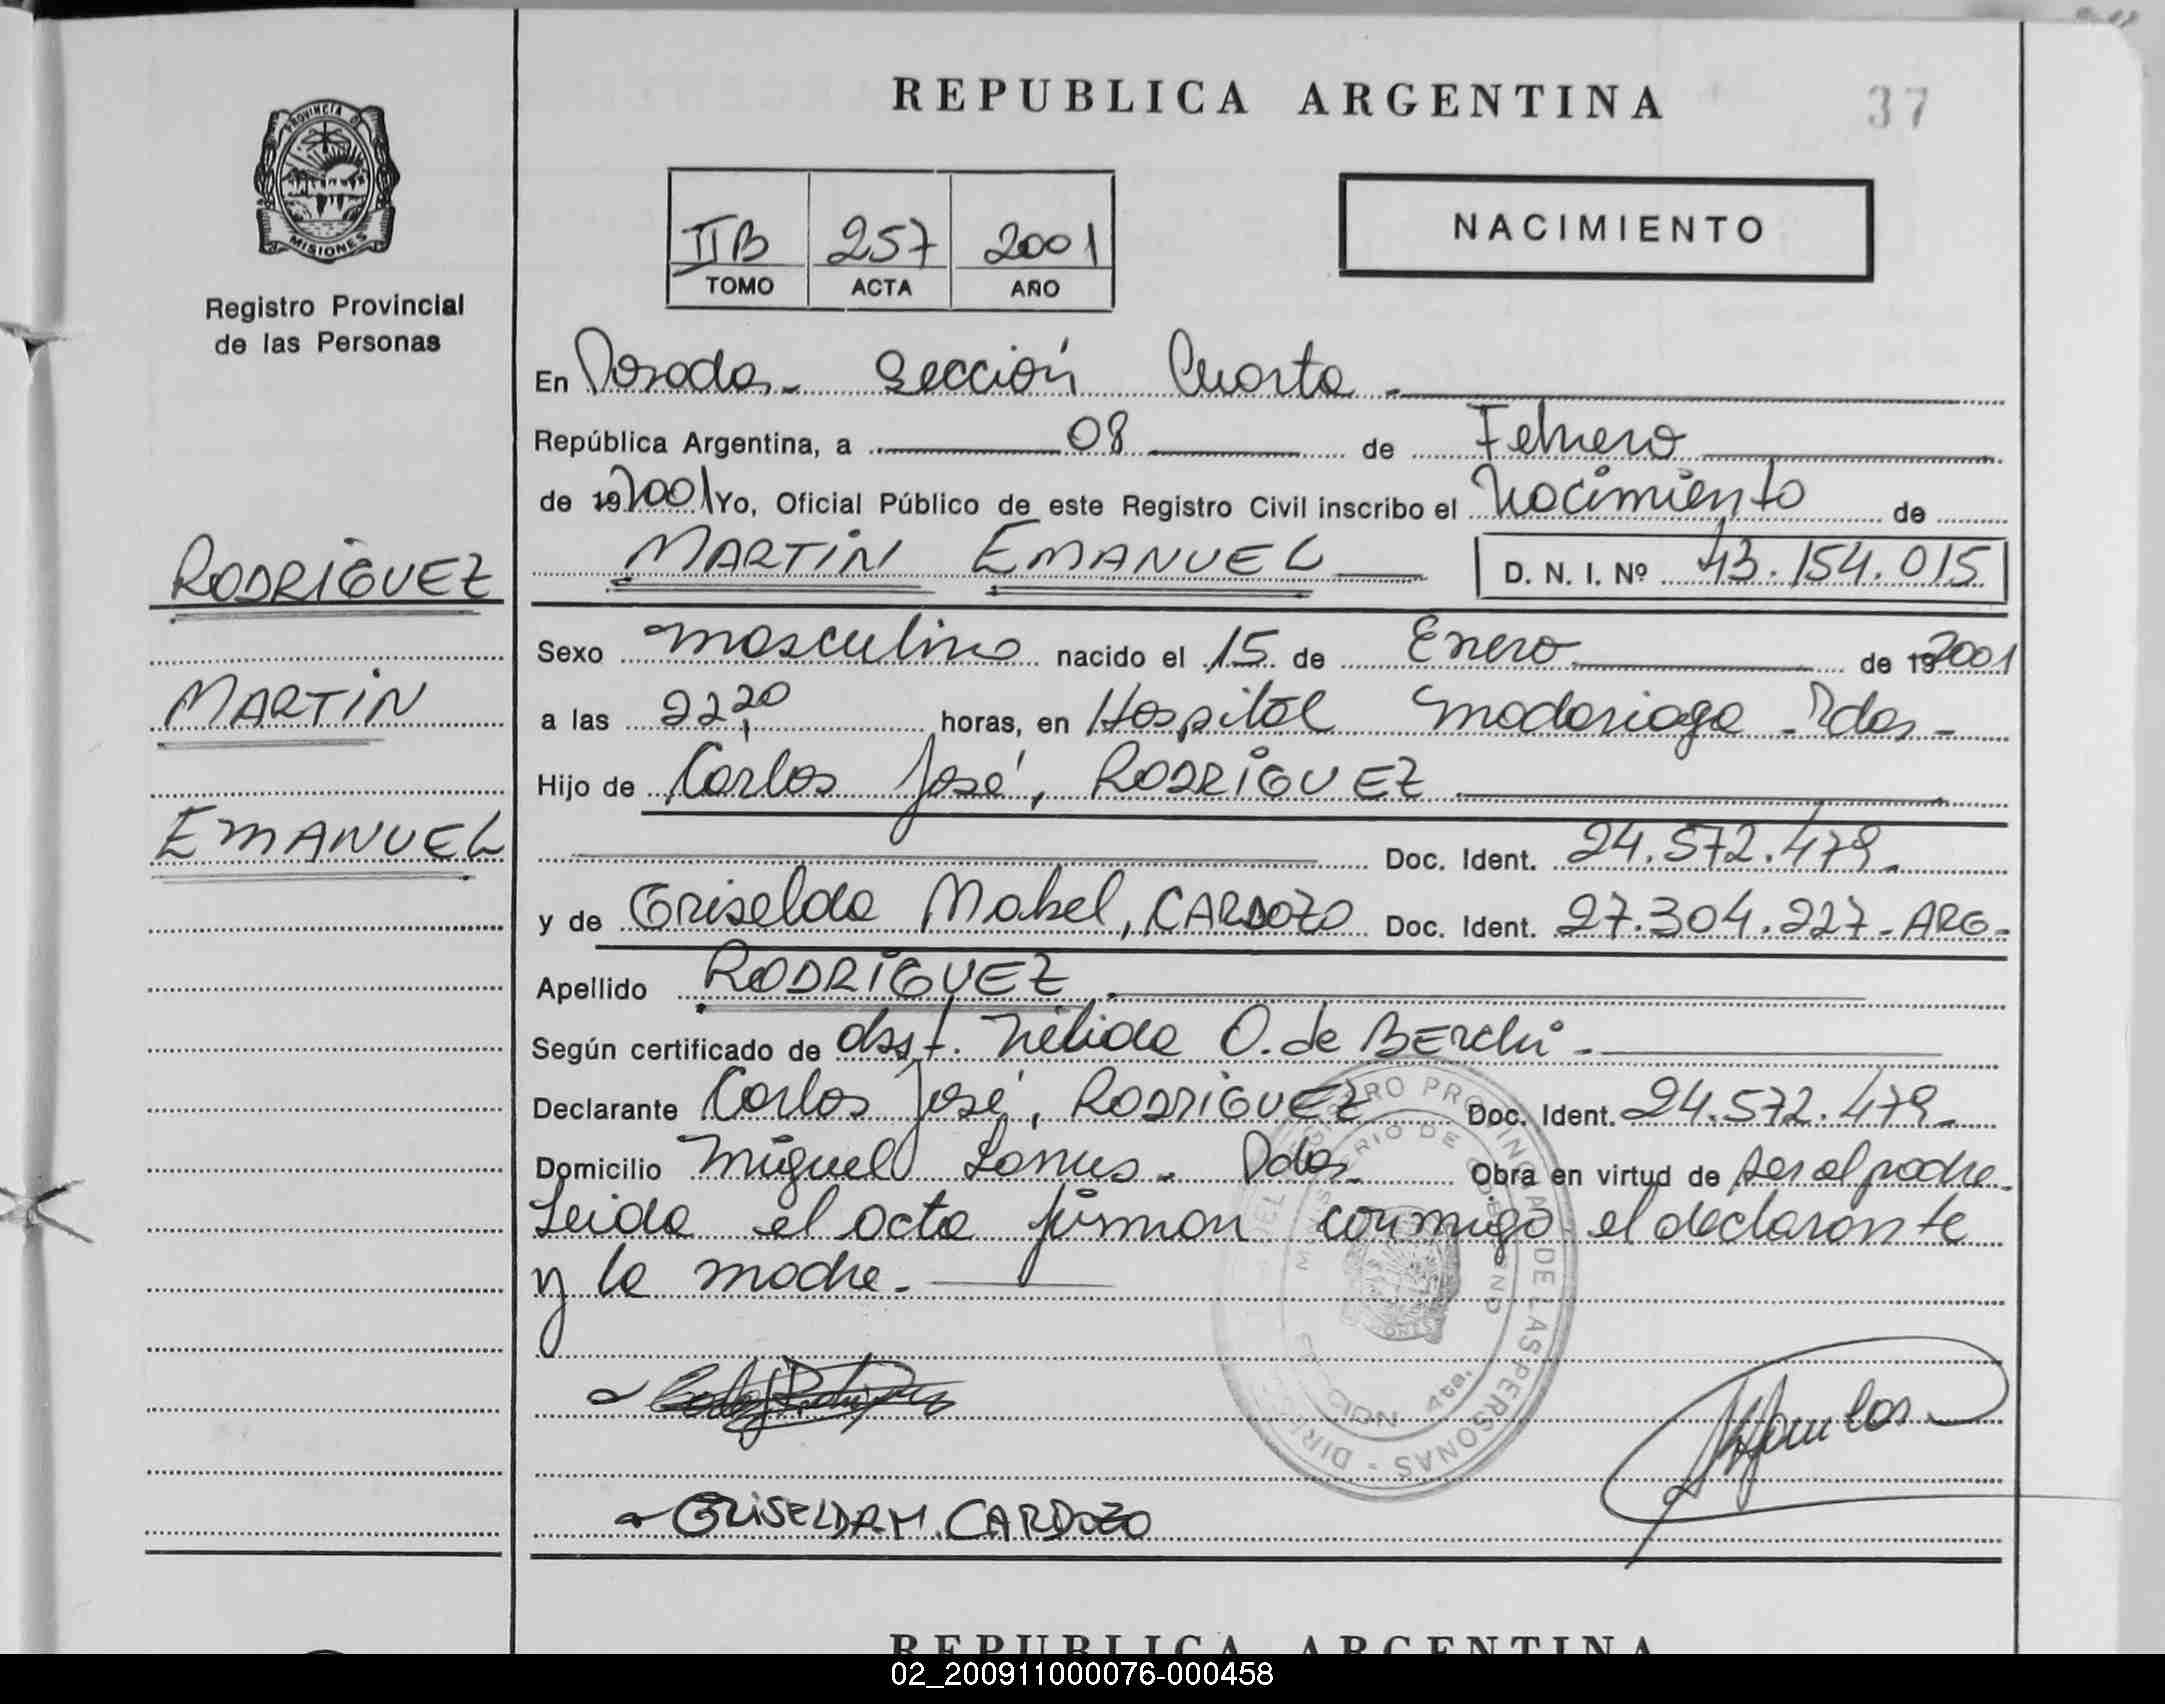 REPUBLICA ARGENTINA
37
PROVINCIA D
MISIONES
Registro Provincial
de las Personas
NACIMIENTO
IIB 257 2001
TOMO ACTA AÑO
En Posadas - Sección Cuarta -
República Argentina, a 08 de Febrero
de 19 2001 Yo, Oficial Público de este Registro Civil inscribo el Nacimiento de
MARTIN EMANUEL D. N. I. Nº 43.154.015
RODRIGUEZ
MARTIN
EMANUEL
Sexo masculino nacido el 15 de Enero de 19 2001
a las 22,20 horas, en Hospital Madariaga - Pdas -
Hijo de Carlos José, RODRIGUEZ
Doc. Ident. 24.572.479-
y de Griselda Mabel, CARDOZO Doc. Ident. 27.304.227- ARG-
Apellido RODRIGUEZ
Según certificado de obst. Nélida O. de BErchi -
Declarante Carlos José, RODRIGUEZ Doc. Ident. 24.572.479-
Domicilio Miguel Lanus - Pdas - Obra en virtud de ser el padre.
Leida el acta firman conmigo el declarante
y la madre.-
GRISELDA M. CARDOZO
REPUBLICA ARGENTINA
02_200911000076-000458